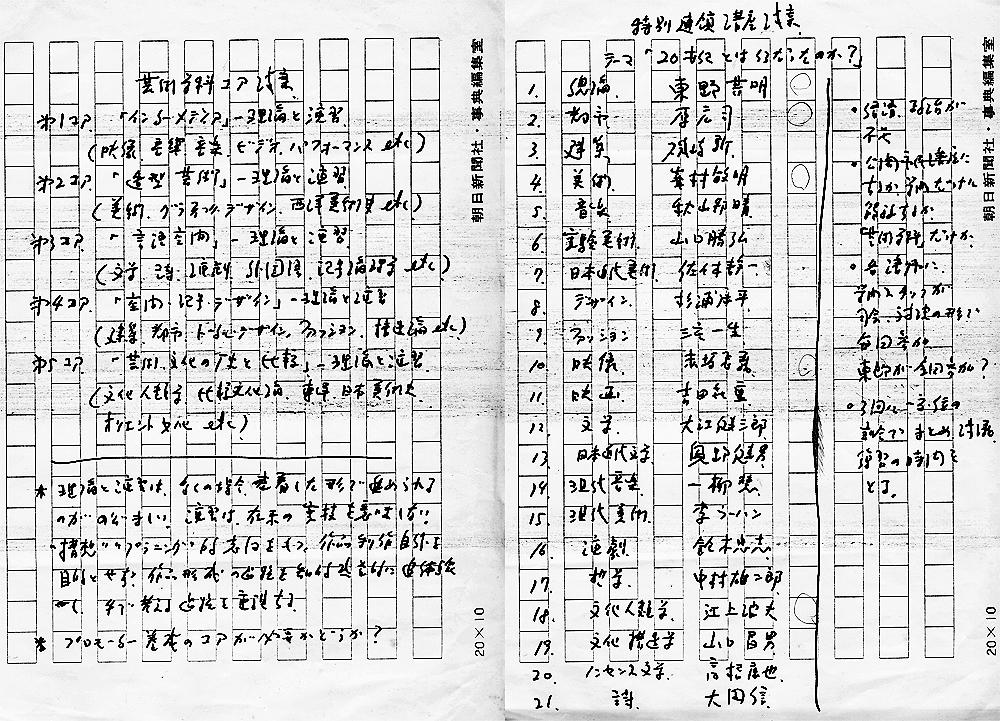 芸術学科コア試案
第1コア 「インターメディア」－理論と演習
(映像、音楽、ビデオ、パフォーマンス etc)
第2コア 「造型芸術」－理論と演習
(美術、グラフィック、デザイン、西洋美術史 etc)
第3コア 「言語空間」－理論と演習
(文学、詩、演劇、外国語、記号論理学 etc)
第4コア 「空間・記号・デザイン」－理論と演習
(建築、都市、トータルデザイン、ファッション、構造論 etc)
第5コア 「芸術文化の歴史と比較」－理論と演習
(文化人類学、比較文化論、東洋、日本美術史、
オリエント文化 etc)
* 理論と演習は、密着した形で進められる
のがのぞましい。演習は、在来の実技を意味しない
"構想" "プランニング" 的志向をもつ。作品制作自体を
目的とせず、作品形成の過程を
考える過程を重視する
* プロモーター 基本のコアが必要かどうか?
朝日新聞社・事典編集室
20×10
特別連続講座試案
テーマ「20世紀とは何だったのか?」
1. 総論 東野芳明
2. 都市 原広司
3. 建築 磯崎新
4. 美術 峯村敏明
5. 音楽 秋山邦晴
6. 実験美術 山口勝弘
7. 日本近代美術
8. デザイン 杉浦康平
9. ファッション 三宅一生
10. 映像
11. 映画 吉田喜重
12. 文学 大江健三郎
13. 日本近代文学 奥野健男
14. 現代音楽 一柳慧
15. 現代美術 李ウーハン
16. 演劇 鈴木忠志
17. 哲学 中村雄二郎
18. 文化人類学 江上波夫
19. 文化構造学 山口昌男
20. ノンセンス文学 高橋康也
21. 詩 大岡信
• 経済、政治が
不足
• 公開市民講座に
するか、学内だけに
限定するか
芸術学科だけか
• 各講師に
学内スタッフが
司会、対談の形で
毎回参加
東野が全回参加?
• 3回に一度位の
討論でまとめ
練習の時間を
とる。
朝日新聞社・事典編集室
20×10